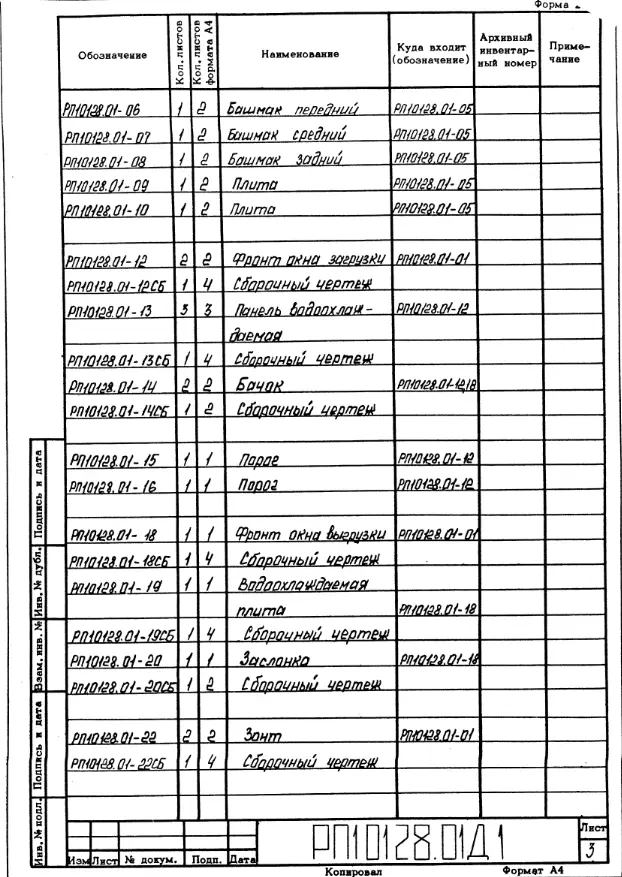 Форма
Обозначение Кол. листов Кол. листов формата А4 Наименование Куда входит (обозначение) Архивный инвентарный номер Примечание
РП10128.01-06 1 2 Башмак передний РП10128.01-05
РП10128.01-07 1 2 Башмак средний РП10128.01-05
РП10128.01-08 1 2 Башмак задний РП10128.01-05
РП10128.01-09 1 2 Плита РП10128.01-05
РП10128.01-10 1 2 Плита РП10128.01-05
РП10128.01-12 2 2 Фронт окна загрузки РП10128.01-01
РП10128.01-12СБ 1 4 Сборочный чертеж
РП10128.01-13 3 3 Панель водоохлаж-
даемая РП10128.01-12
РП10128.01-13СБ 1 4 Сборочный чертеж
РП10128.01-14 2 2 Бачок РП10128.01-12,18
РП10128.01-14СБ 1 2 Сборочный чертеж
РП10128.01-15 1 1 Порог РП10128.01-12
РП10128.01-16 1 1 Порог РП10128.01-12
РП10128.01-18 1 1 Фронт окна выгрузки РП10128.01-01
РП10128.01-18СБ 1 4 Сборочный чертеж
РП10128.01-19 1 1 Водоохлаждаемая
плита РП10128.01-18
РП10128.01-19СБ 1 4 Сборочный чертеж
РП10128.01-20 1 1 Заслонка РП10128.01-18
РП10128.01-20СБ 1 2 Сборочный чертеж
РП10128.01-22 2 2 Зонт РП10128.01-01
РП10128.01-22СБ 1 4 Сборочный чертеж
Инв. № подл. Подпись и дата Взам. инв. № Инв. № дубл. Подпись и дата
Изм Лист № докум. Подп. Дата
РП10128.01Д1
Лист
3
Копировал Формат А4